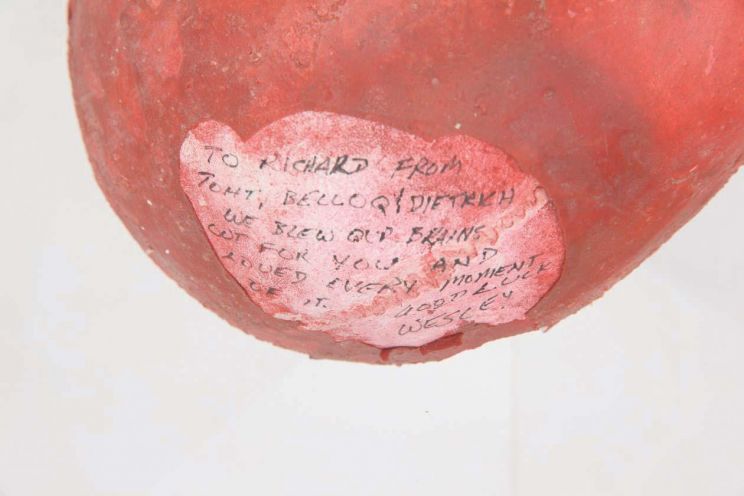 TO RICHARD FROM
TOHT, BELLOQ & DIETRICH
WE BLEW OUR BRAINS
OUT FOR YOU AND
LOVED EVERY MOMENT
OF IT. GOOD LUCK
WESLEY